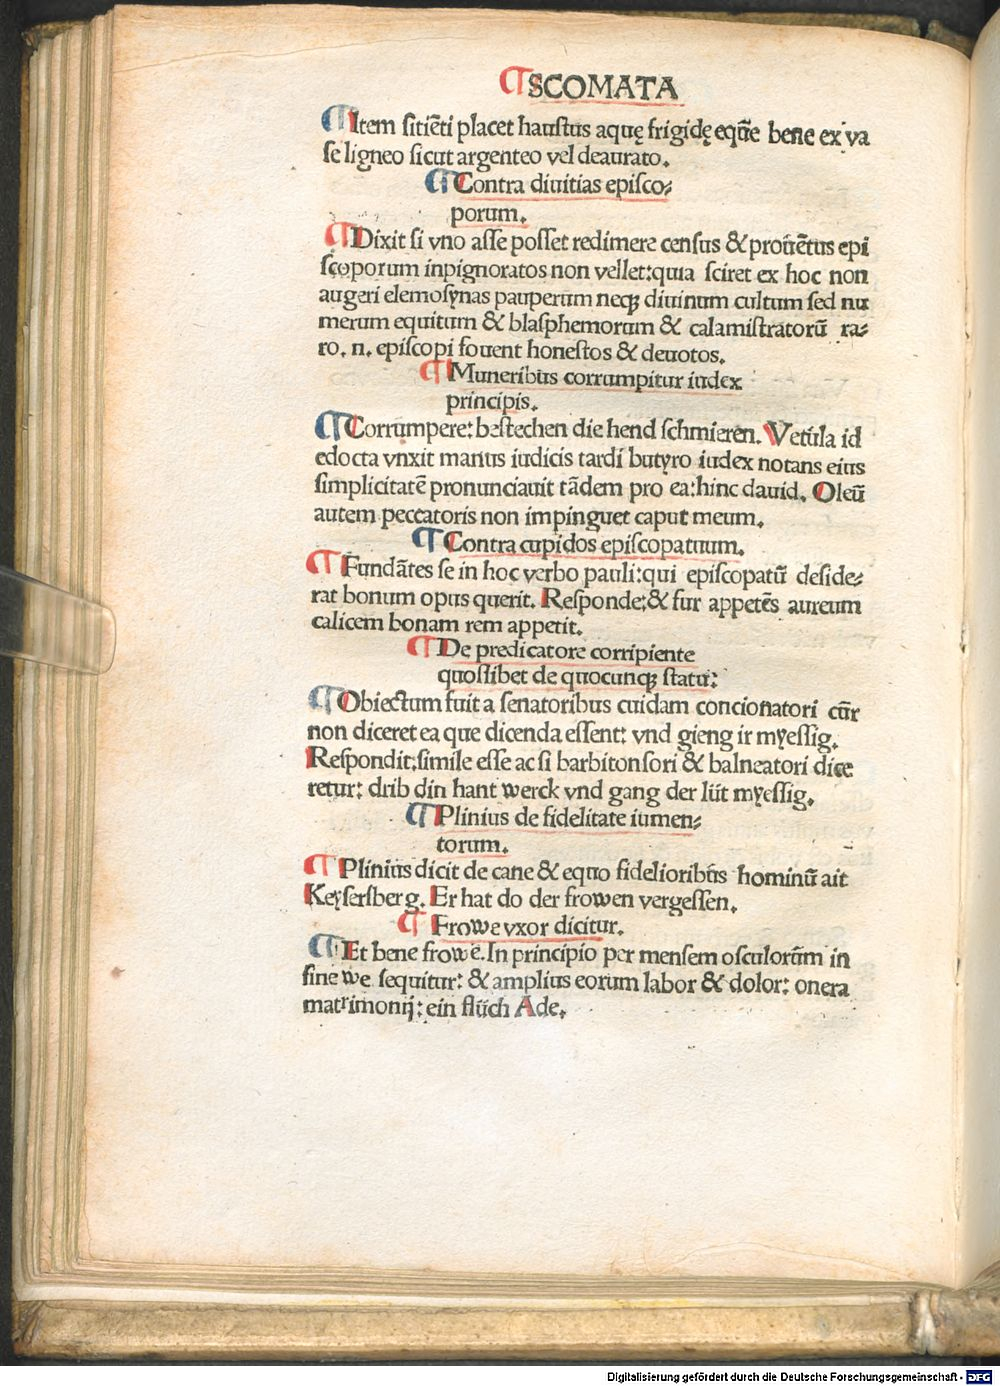 ¶SCOMATA
¶Item sitiēti placet haustus aquę frigidę eque̅ bene ex va
se ligneo sicut argenteo vel deaurato.
¶Contra diuitias episco-
porum.
¶Dixit si vno asse posset redimere census & prouētus epi
scoporum inpignoratos non vellet: quia sciret ex hoc non
augeri elemosynas pauperum neqꝫ diuinum cultum sed nu
merum equitum & blasphemorum & calamistratorū ra-
ro. n. episcopi fouent honestos & deuotos.
¶Muneribus corrumpitur iudex
principis.
¶Corrumpere: bestechen die hend schmieren. Vetula id
edocta vnxit manus iudicis tardi butyro iudex notans eius
simplicitatē pronunciauit tādem pro ea: hinc dauid. Oleū
autem peccatoris non impinguet caput meum.
¶Contra cupidos episcopatuum.
¶Fundātes se in hoc verbo pauli: qui episcopatū deside-
rat bonum opus querit. Responde: & fur appetēs aureum
calicem bonam rem appetit.
¶De predicatore corripiente
quoslibet de quocunqꝫ statu:
¶Obiectum fuit a senatoribus cuidam concionatori cūr
non diceret ea que dicenda essent: vnd gieng ir myessig.
Respondit: simile esse ac si barbitonsori & balneatori dice
retur: drib din hant werck vnd gang der lüt myessig.
¶Plinius de fidelitate iumen-
torum.
¶Plinius dicit de cane & equo fidelioribus hominū ait
Keysersberg. Er hat do der frowen vergessen.
¶Frowe vxor dicitur.
¶Et bene frow e. In principio per mensem osculorum in
fine we sequitur: & amplius eorum labor & dolor: onera
matrimonij: ein flüch Ade.
Digitalisierung gefördert durch die Deutsche Forschungsgemeinschaft - DFG